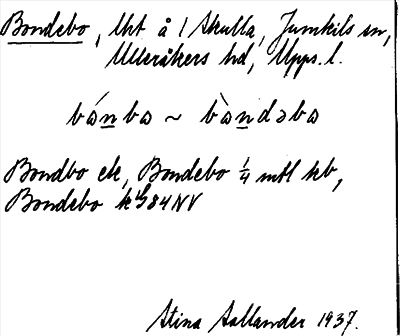 Bondebo, lht å 1 Skulla, Jumkils sn,
Ulleråkers hd, Upps. l.
bánba ~ bàndəba
Bondbo ek, Bondebo ¼ mtl kb,
Bondebo 84 NV
Stina Sallander 1937.